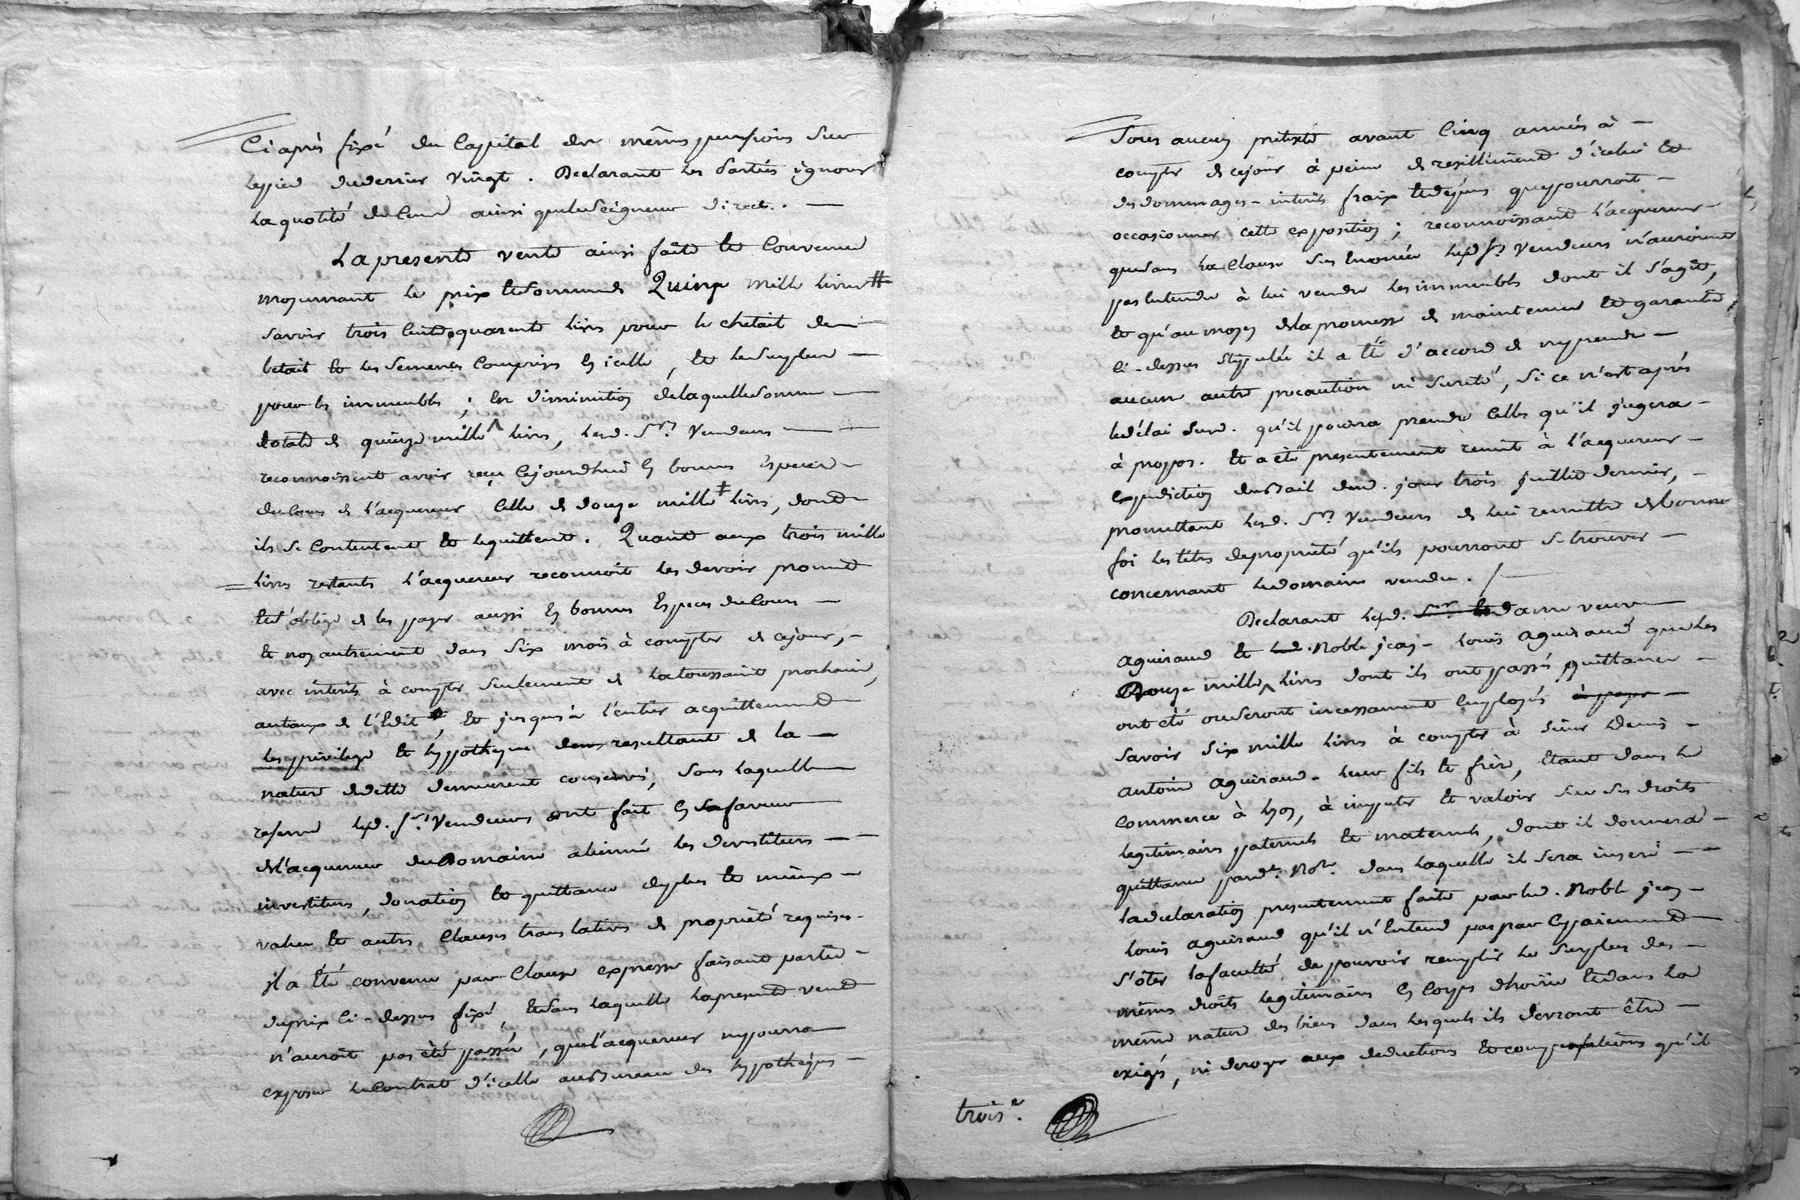 Ci après fixé du Capital des mêmes pensions sur
le pied du denier vingt. Declarant les Parties ignorer
la quotité du Cens ainsi que le Seigneur direct. —
La presente vente ainsi faite et Convenue
moyennant le prix et somme de Quinze mille livres #
savoir trois Cent quarente livres pour le chetail de
betail et les semences Comprises en icelle, et le surplus —
pour les immeubles; en diminution de laquelle somme —
totale de quinze mille ^ livres, lesd. Srs. Vendeurs —
reconnoissent avoir reçu cejourdhui en bonnes Espèces
du Cours de l'acquereur Celle de douze mille ‡ livres, dont
ils se Contentent et le quittent. Quant aux trois mille
= livres restants l'acquereur reconnoit les devoir promet
et s'oblige de les payer aussi en bonnes Especes du Cours —
et non autrement dans Six mois à compter de cejour, —
avec interets à compter seulement de la toussaint prochaine,
au taux de l'Edit, et jusques à l'entier acquittement
les privilege et hypotheque resultant de la —
nature de dette demeurent conservés, sous laquelle
reserve lesd. Srs. Vendeurs ont fait en la faveur
de l'acquereur du Domaine aliénné les devestitures —
investitures, donation et quittance de plus et mieux —
value et autres Clauses translatives de propriété requises.
il a été convenu par Clause expresse faisant partie —
du prix Ci-dessus fixé, et sans laquelle la presente vente
n'auroit pas été passée, que l'acquereur ne pourra
exposer le Contrat d'icelle au Bureau des hypotheques —
Sous aucun pretexte avant Cinq années à —
compter de cejour à peine de resiliment d'icelui et
des dommages-interets fraix et depens que pourroit —
occasionner cette exposition; reconnoissant l'acquereur
que sans la Clause sus enoncée lesd. Srs. Vendeurs n'auroient
pas entendu à lui vendre les immeubles dont il s'agit,
et qu'au moyen de la promesse de maintenue et garantie
Ci-dessus stipulée il a été d'accord de ne prendre —
aucune autre precaution ni sureté, si ce n'est après
le délai susd. qu'il pourra prendre Celles qu'il jugera —
à propos. Et a été presentement remit à l'acquereur —
expedition du Bail dud. jour trois juillet dernier, —
promettant lesd. Srs. Vendeurs de lui remettre de bonne
foi les titres de propriété qu'ils pourront se trouver —
concernant le domaine vendu. /—
Declarant lesd. Srs. et dame veuve
aguiraud et led. Noble jean-louis aguiraud que les
Douze mille ^ livres dont ils ont passés quittance —
ont été ou seront incessament employés à payer —
savoir six mille livres à compte à sieur Denis —
antoine aguiraud leur fils et frère, etant dans le
Commerce à lyon, à imputer et valoir sur ses droits
legitimaires paternels et maternels, dont il donnera —
quittance pard.t Not.e dans laquelle il sera inseré —
la declaration presentement faite par led. Noble jean-
louis aguiraud qu'il n'entend pas par ce paiement
s'ôter la faculté de pouvoir remplir le surplus des —
mêmes droits legitimaires en Corps d'hoirie et dans la
même nature des biens dans lesquels ils devront être —
exigés, ni deroger aux deductions et compensations qu'il
trois.e